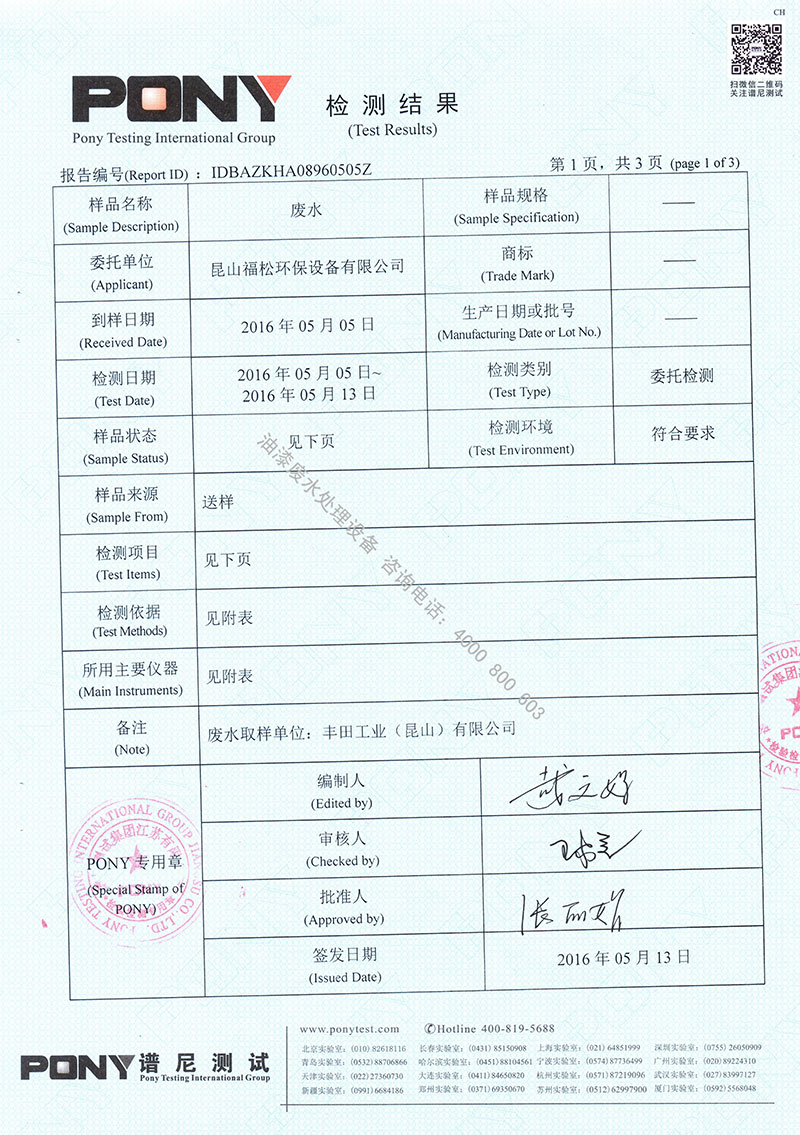 CH
扫微信二维码
关注谱尼测试
PONY
Pony Testing International Group
检测结果
(Test Results)
报告编号(Report ID) : IDBAZKHA08960505Z
第 1 页，共 3 页 (page 1 of 3)
样品名称
(Sample Description)
废水
样品规格
(Sample Specification)
——
委托单位
(Applicant)
昆山福松环保设备有限公司
商标
(Trade Mark)
——
到样日期
(Received Date)
2016 年 05 月 05 日
生产日期或批号
(Manufacturing Date or Lot No.)
——
检测日期
(Test Date)
2016 年 05 月 05 日~
2016 年 05 月 13 日
检测类别
(Test Type)
委托检测
样品状态
(Sample Status)
见下页
检测环境
(Test Environment)
符合要求
样品来源
(Sample From)
送样
检测项目
(Test Items)
见下页
检测依据
(Test Methods)
见附表
所用主要仪器
(Main Instruments)
见附表
备注
(Note)
废水取样单位：丰田工业（昆山）有限公司
油漆废水处理设备 咨询电话：4000 800 603
PONY 专用章
(Special Stamp of
PONY)
编制人
(Edited by)
审核人
(Checked by)
批准人
(Approved by)
签发日期
(Issued Date)
2016 年 05 月 13 日
PONY 谱尼测试
Pony Testing International Group
www.ponytest.com ✆Hotline 400-819-5688
北京实验室：(010) 82618116 长春实验室：(0431) 85150908 上海实验室：(021) 64851999 深圳实验室：(0755) 26050909
青岛实验室：(0532) 88706866 哈尔滨实验室：(0451) 88104561 宁波实验室：(0574) 87736499 广州实验室：(020) 89224310
天津实验室：(022) 27360730 大连实验室：(0411) 84650820 杭州实验室：(0571) 87219096 武汉实验室：(027) 83997127
新疆实验室：(0991) 6684186 郑州实验室：(0371) 69350670 苏州实验室：(0512) 62997900 厦门实验室：(0592) 5568048